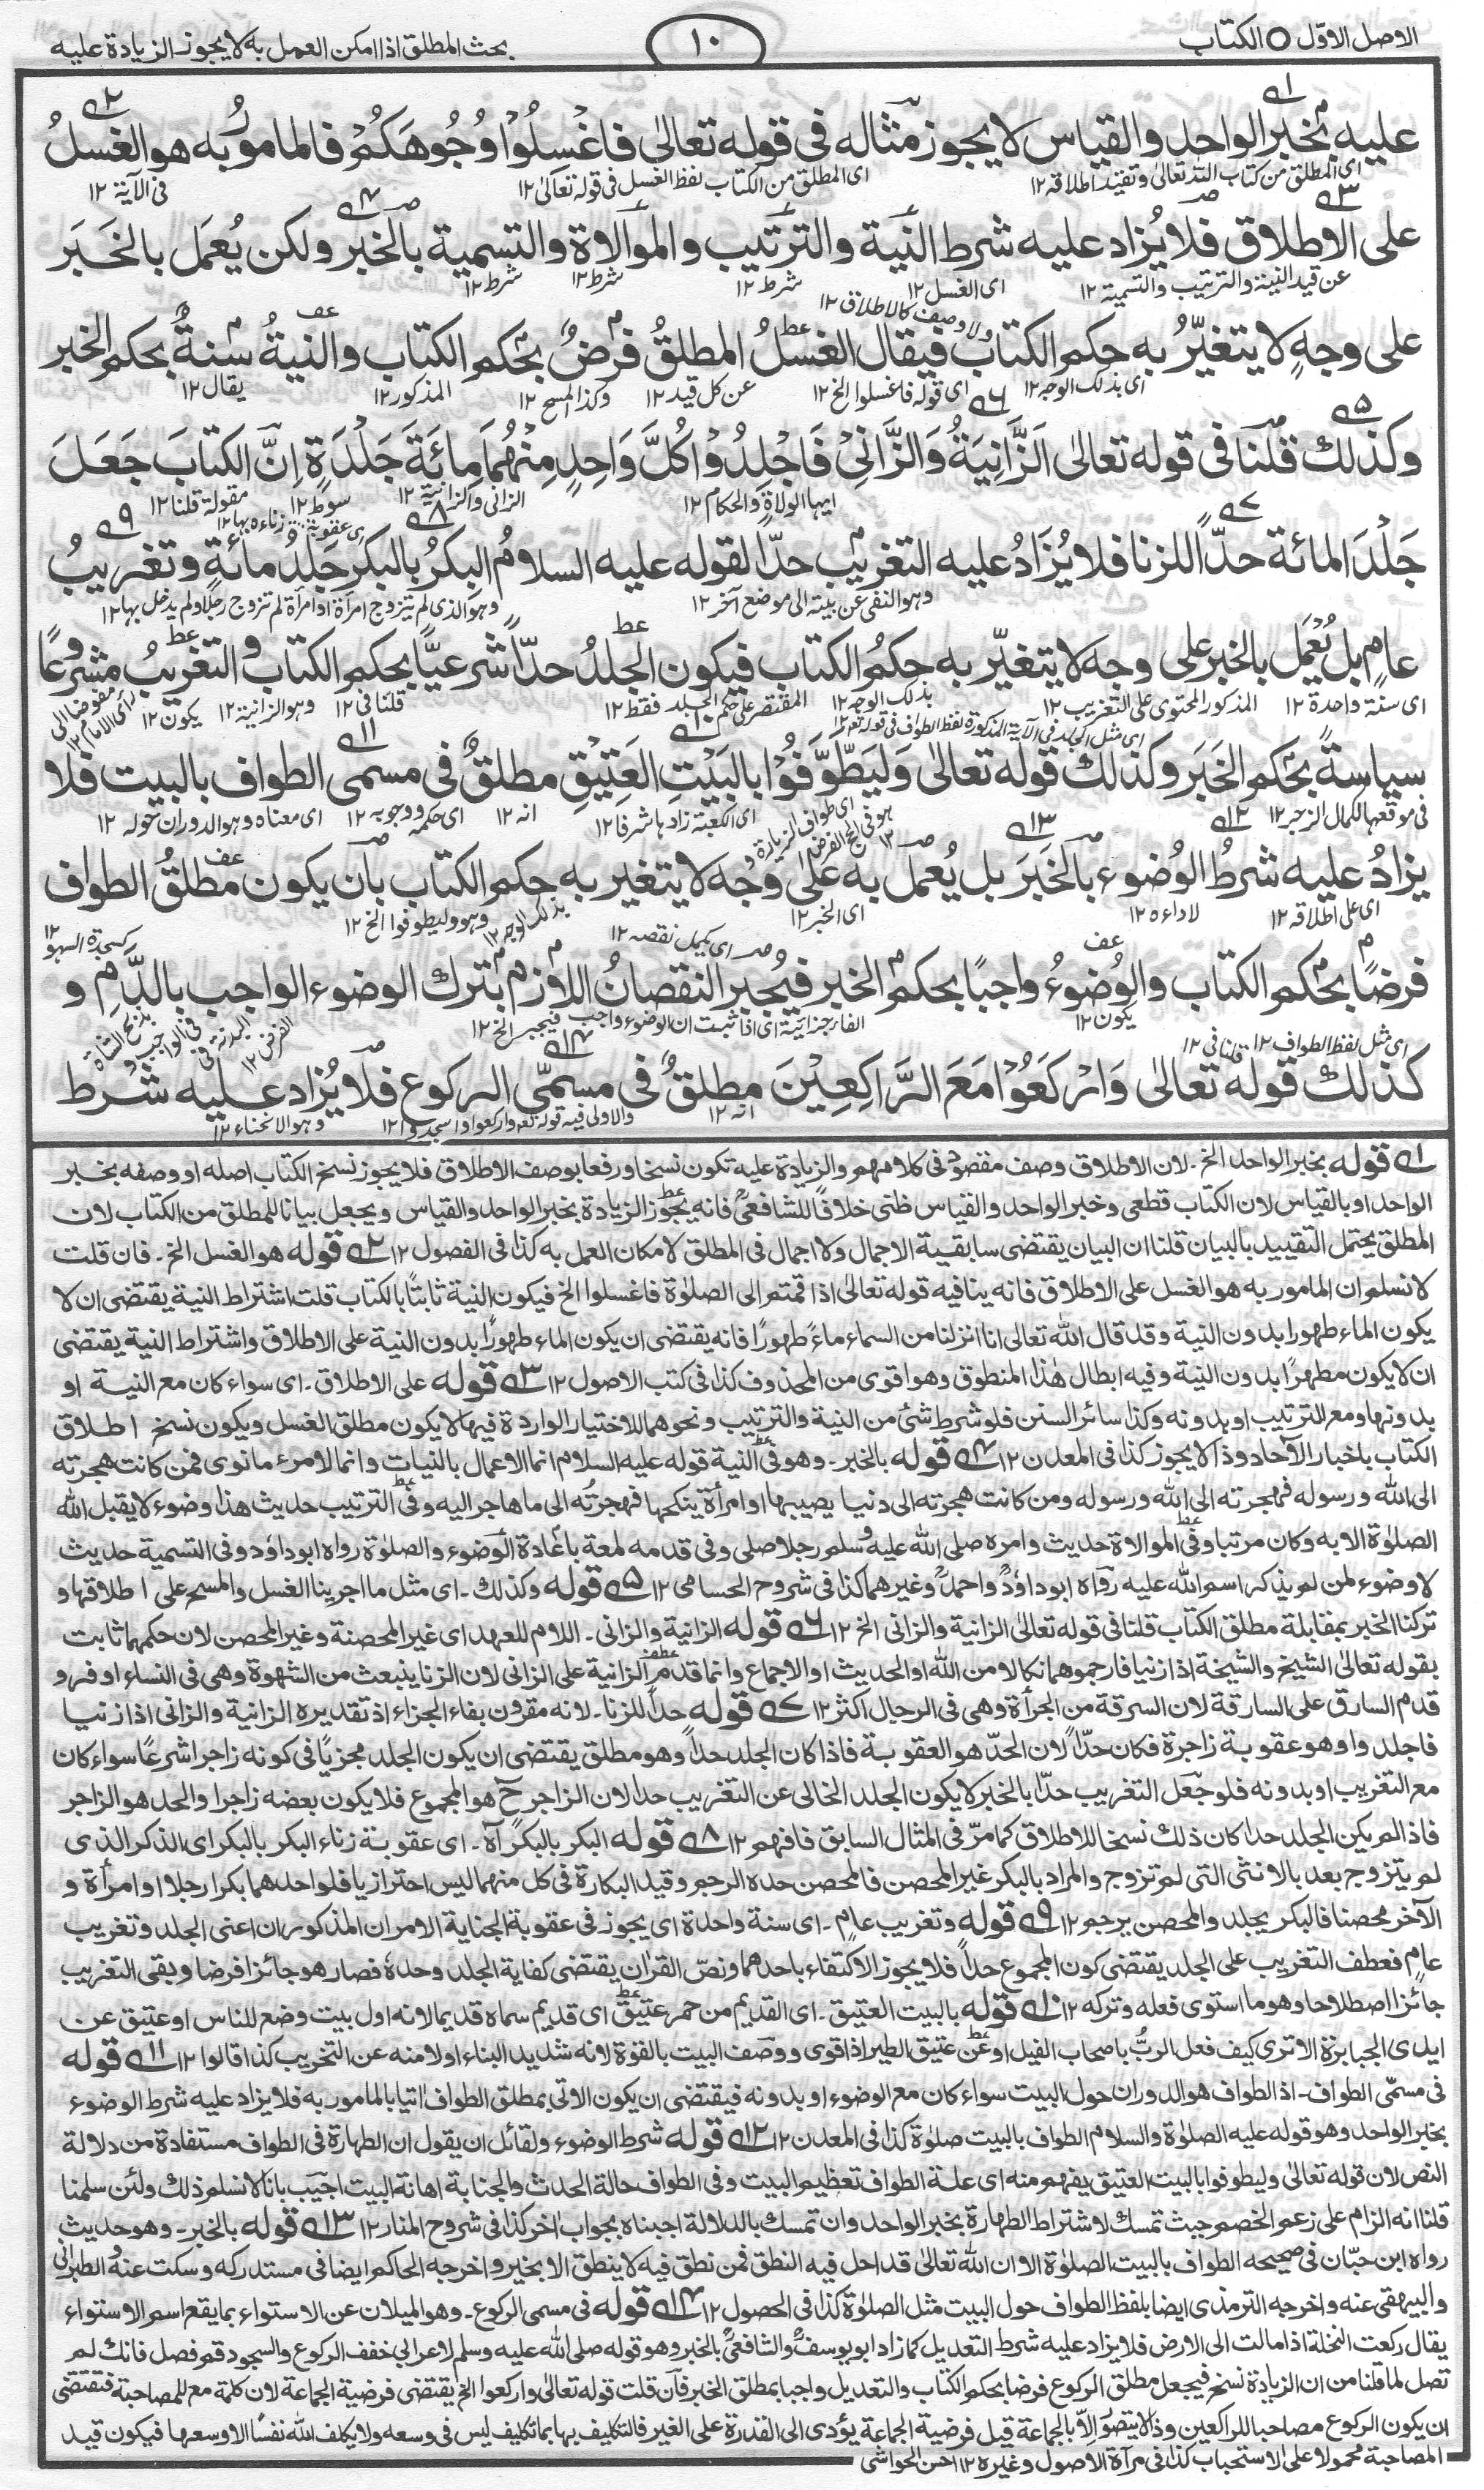 الاصل الاوّل ○ الكتاب
١٠
بحث المطلق اذا امكن العمل به لا يجوز الزيادة عليه
عليه بخبر الواحد والقياس لا يجوز مثاله فى قوله تعالىٰ فاغْسِلُوْا وُجُوهَكُمْ فالمامورُ به هو الغسلُ
اى المطلق من كتاب الله تعالىٰ وتقيد اطلاقه ١٢ اى المطلق من الكتاب لفظ الغسل فى قوله تعالىٰ ١٢ فى الآية ١٢
على الاطلاق فلا يُزاد عليه شرط النية والترتيب والموالاة والتسمية بالخبر ولكن يُعمَل بالخَبَر
عن قيد النية والترتيب والتسمية ١٢ اى الغسل ١٢ شرط ١٢ شرط ١٢ شرط ١٢
ولا وصف كالاطلاق ١٢
على وجهٍ لا يتغيّرُ به حكم الكتاب فيقال الغسلُ المطلقُ فرضٌ بحكم الكتاب والنيةُ سنةٌ بحكم الخبر
اى بذلك الوجه ١٢ اى قوله فاغسلوا الخ ١٢ عن كل قيد ١٢ وكذا المسح ١٢ المذكور ١٢ يقال ١٢
وكذلك قلنا فى قوله تعالىٰ اَلزَّانِيَةُ وَالزَّانِىْ فَاجْلِدُوْا كُلَّ وَاحِدٍ مِنْهُمَا مِائَةَ جَلْدَةٍ اِنَّ الكتابَ جَعَلَ
ايها الولاة والحكام ١٢ الزانى والزانية ١٢ سوط ١٢ مقولة قلنا ١٢
اى عقوبة زناءه بها ١٢
جَلْدَ المائة حدًّا للزنا فلا يُزَادُ عليه التغريب حدًّا لقوله عليه السلامُ البكرُ بالبكر جَلدُ مائةٍ وتغريبُ
وهو النفى عن بيته الى موضع آخر ١٢ وهو الذى لم يتزوج امرأة او امرأة لم تزوج رجلًا ولم يدخل بها ١٢
عامٍ بل يُعْمَل بالخبر على وجه لا يتغيّر به حكمُ الكتاب فيكون الجلدُ حدًّا شرعيًّا بحكم الكتاب والتغريبُ مشروعًا
اى سنة واحدة ١٢ المذكور المحتوى على التغريب ١٢ بذلك الوجه ١٢ المقتصر على حكم الجلد فقط ١٢ قلنا فى ١٢ وهو الزانية ١٢ يكون ١٢ مفوضا الى رأى الامام ١٢
اى مثل الجلد فى الآية المذكورة لفظ الطواف فى قوله تع ١٢
سياسةً بحكم الخَبَر وكذلك قوله تعالىٰ وَلْيَطَّوَّفُوْا بِالبَيْتِ العَتِيْقِ مطلقٌ فى مسمى الطواف بالبيت فلا
فى موقعها لكمال الزجر ١٢ اى الكعبة زادها شرفا ١٢ انه ١٢ اى حكمه ووجوبه ١٢ اى معناه وهو الدوران حوله ١٢
هو فى الحج الفرض اى طواف الزيارة
يزادُ عليه شرطُ الوُضوء بالخَبَر بل يُعمل به على وجه لا يتغير به حكم الكتاب بان يكون مطلقُ الطواف
اى على اطلاقه ١٢ لاداءه ١٢ اى الخبر ١٢ بذلك الوجه ١٢ وهو وليطوفوا الخ ١٢
اى يكمل نقصه ١٢ كسجدة السهو ١٢
فرضًا بحكم الكتاب والوُضوءُ واجبًا بحكم الخبر فيُجبر النقصانُ اللازم بترك الوضوء الواجب بالدَّمِ و
يكون ١٢ الفاء جزائية اى اذا ثبت ان الوضوء واجب فيجبر الخ ١٢ بذبح الشاة فى الواجب و البدنة فى الفرض ١٢
اى مثل لفظ الطواف ١٢ قلنا فى ١٢
كذلك قوله تعالىٰ وَارْكَعُوْا مَعَ الرَّاكِعِيْنَ مطلقٌ فى مسمّى الركوع فلا يُزاد عليه شرط
انه ١٢ والاولى فيه قوله تعه واركعوا واسجدوا ١٢ وهو الانحناء ١٢
١؎ قوله بخبر الواحد الخ۔ لان الاطلاق وصف مقصود فى كلامهم والزيادة عليه تكون نسخا ورفعا بوصف الاطلاق فلا يجوز نسخ الكتاب اصله او وصفه بخبر
الواحد او بالقياس لان الكتاب قطعى وخبر الواحد والقياس ظنى خلافًا للشافعىؒ فانه يجوّز الزيادة بخبر الواحد والقياس ويجعل بيانا للمطلق من الكتاب لان
المطلق يحتمل التقييد بالبيان قلنا ان البيان يقتضى سابقية الاجمال ولا اجمال فى المطلق لامكان العمل به كذا فى الفصول ١٢ ٢؎ قوله هو الغسل الخ۔ فان قلت
لا نسلم ان المامور به هو الغسل على الاطلاق فانه ينافيه قوله تعالىٰ اذا قمتم الى الصلوٰة فاغسلوا الخ فيكون النية ثابتًا بالكتاب قلت اشتراط النية يقتضى ان لا
يكون الماء طهورا بدون النية وقد قال الله تعالى انا انزلنا من السماء ماءً طهورًا فانه يقتضى ان يكون الماء طهورًا بدون النية على الاطلاق واشتراط النية يقتضى
ان لا يكون مطهرًا بدون النية وفيه ابطال هٰذا المنطوق وهو اقوى من المحذوف كذا فى كتب الاصول ١٢ ٣؎ قوله على الاطلاق۔ اى سواء كان مع النية او
بدونها ومع الترتيب او بدونه وكذا سائر السنن فلو شرط شئ من النية والترتيب ونحوهما للاختيار الواردة فيها لا يكون مطلق الغسل ويكون نسخ اطلاق
الكتاب باخبار الآحاد وذا لا يجوز كذا فى المعدن ١٢ ٤؎ قوله بالخبر۔ وهو فى النية قوله عليه السلام انما الاعمال بالنيات وانما لامرء ما نوى فمن كانت هجرته
الى الله ورسوله فهجرته الى الله ورسوله ومن كانت هجرته الى دنيا يصيبها او امرأة ينكحها فهجرته الى ما هاجر اليه وفى الترتيب حديث هذا وضوء لا يقبل الله
الصلوٰة الا به وكان مرتبا وفى الموالاة حديث وامره صلى الله عليه وسلم رجلا صلى وفى قدمه لمعة باعادة الوضوء والصلوٰة رواه ابو داود وفى التسمية حديث
لا وضوء لمن لم يذكر اسم الله عليه رواه ابو داوٗدؒ واحمدؒ وغيرهما كذا فى شروح الحسامى ١٢ ٥؎ قوله وكذلك۔ اى مثل ما اجرينا الغسل والمسح على اطلاقها و
تركنا الخبر بمقابلة مطلق الكتاب قلنا فى قوله تعالىٰ الزانية والزانى الخ ١٢ ٦؎ قوله الزانية والزانى۔ اللام للعهد اى غير المحصنة وغير المحصن لان حكمهما ثابت
بقوله تعالىٰ الشيخ والشيخة اذا زنيا فارجموهما نكالا من الله او الحديث او الاجماع وانما قدم الزانية على الزانى لان الزنا ينبعث من الشهوة وهى فى النساء اوفر و
قدم السارق على السارقة لان السرقة من الجرأة وهى فى الرجال اكثر ١٢ ٧؎ قوله حدًا للزنا۔ لانه مقرون بفاء الجزاء اذ تقديره الزانية والزانى اذا زنيا
فاجلدوا وهو عقوبة زاجرة فكان حدًّا لان الحدّ هو العقوبة فاذا كان الجلد حدا وهو مطلق يقتضى ان يكون الجلد مجزيًا فى كونه زاجرا شرعًا سواء كان
مع التغريب او بدونه فلو جعل التغريب حدًّا بالخبر لا يكون الجلد الخالى عن التغريب حدا لان الزاجر حٓ هو المجموع فلا يكون بعضه زاجرا والحد هو الزاجر
فاذا لم يكن الجلد حدا كان ذلك نسخا للاطلاق كما مرّ فى المثال السابق فافهم ١٢ ٨؎ قوله البكر بالبكر آه۔ اى عقوبة زناء البكر بالبكر اى الذكر الذى
لم يتزوج بعد بالانثى التى لم تزوج والمراد بالبكر غير المحصن فالمحصن حده الرجم وقيد البكارة فى كل منهما ليس احترازيا فلو احدهما بكرا رجلا او امرأة و
الآخر محصنا فالبكر يجلد والمحصن يرجم ١٢ ٩؎ قوله وتغريب عام۔ اى سنة واحدة اى يجوز فى عقوبة الجناية الامران المذكوران اعنى الجلد وتغريب
عام فعطف التغريب على الجلد يقتضى كون المجموع حدا فلا يجوز الاكتفاء باحدهما ونصّ القراٰن يقتضى كفاية الجلد وحدهٗ فصار هو جائزا فرضا وبقى التغريب
جائزا اصطلاحا وهو ما استوى فعله وتركه ١٢ ١٠؎ قوله بالبيت العتيق۔ اى القديم من خمر عتيق اى قديم سماه قديما لانه اول بيت وضع للناس او عتيق عن
ايدى الجبابرة الا ترى كيف فعل الربُّ باصحاب الفيل او عن عتيق الطير اذا قوى ووصف البيت بالقوة لانه شديد البناء او لامنه عن التخريب كذا قالوا ١٢ ١١؎ قوله
فى مسمّى الطواف۔ اذ الطواف هو الدوران حول البيت سواء كان مع الوضوء او بدونه فيقتضى ان يكون الاٰتى بمطلق الطواف اٰتيا بالمامور به فلا يزاد عليه شرط الوضوء
بخبر الواحد وهو قوله عليه الصلوٰة والسلام الطواف بالبيت صلوٰة كذا فى المعدن ١٢ ١٢؎ قوله شرط الوضوء ولقائل ان يقول ان الطهارة فى الطواف مستفادة من دلالة
النص لان قوله تعالىٰ وليطوفوا بالبيت العتيق يفهم منه اى علة الطواف تعظيم البيت وفى الطواف حالة الحدث والجنابة اهانة البيت اجيب بانا لا نسلم ذلك ولئن سلمنا
قلنا انه الزام على زعم الخصم حيث تمسك لاشتراط الطهارة بخبر الواحد وان تمسك بالدلالة اجبناه بجواب اٰخر كذا فى شروح المنار ١٢ ١٣؎ قوله بالخبر۔ وهو حديث
رواه ابن حبّان فى صحيحه الطواف بالبيت الصلوٰة الا ان الله تعالىٰ قد احل فيه النطق فمن نطق فيه لا ينطق الا بخير واخرجه الحاكم ايضا فى مستدركه وسكت عنه والطبرانى
والبيهقى عنه واخرجه الترمذى ايضا بلفظ الطواف حول البيت مثل الصلوٰة كذا فى الحصول ١٢ ١٤؎ قوله فى مسمى الركوع۔ وهو الميلان عن الاستواء بما يقع اسم الاستواء
يقال ركعت النخلة اذا مالت الى الارض فلا يزاد عليه شرط التعديل كما زاد ابو يوسفؒ والشافعىؒ بالخبر وهو قوله صلى الله عليه وسلم لاعرابى خفف الركوع والسجود قم فصل فانك لم
تصل لما قلنا من ان الزيادة نسخ فيجعل مطلق الركوع فرضا بحكم الكتاب والتعديل واجبا بمطلق الخبر فان قلت قوله تعالىٰ واركعوا الخ يقتضى فرضية الجماعة لان كلمة مع للمصاحبة فتقتضى
ان يكون الركوع مصاحبا للراكعين وذا لا يتصور الّا بالجماعة قيل فرضية الجماعة يؤدى الى القدرة على الغير فالتكليف بها بما تكليف ليس فى وسعه ولا يكلف الله نفسًا الا وسعها فيكون قيد
المصاحبة محمولا على الاستحباب كذا فى مرآة الاصول وغيره ١٢ احسن الحواشى